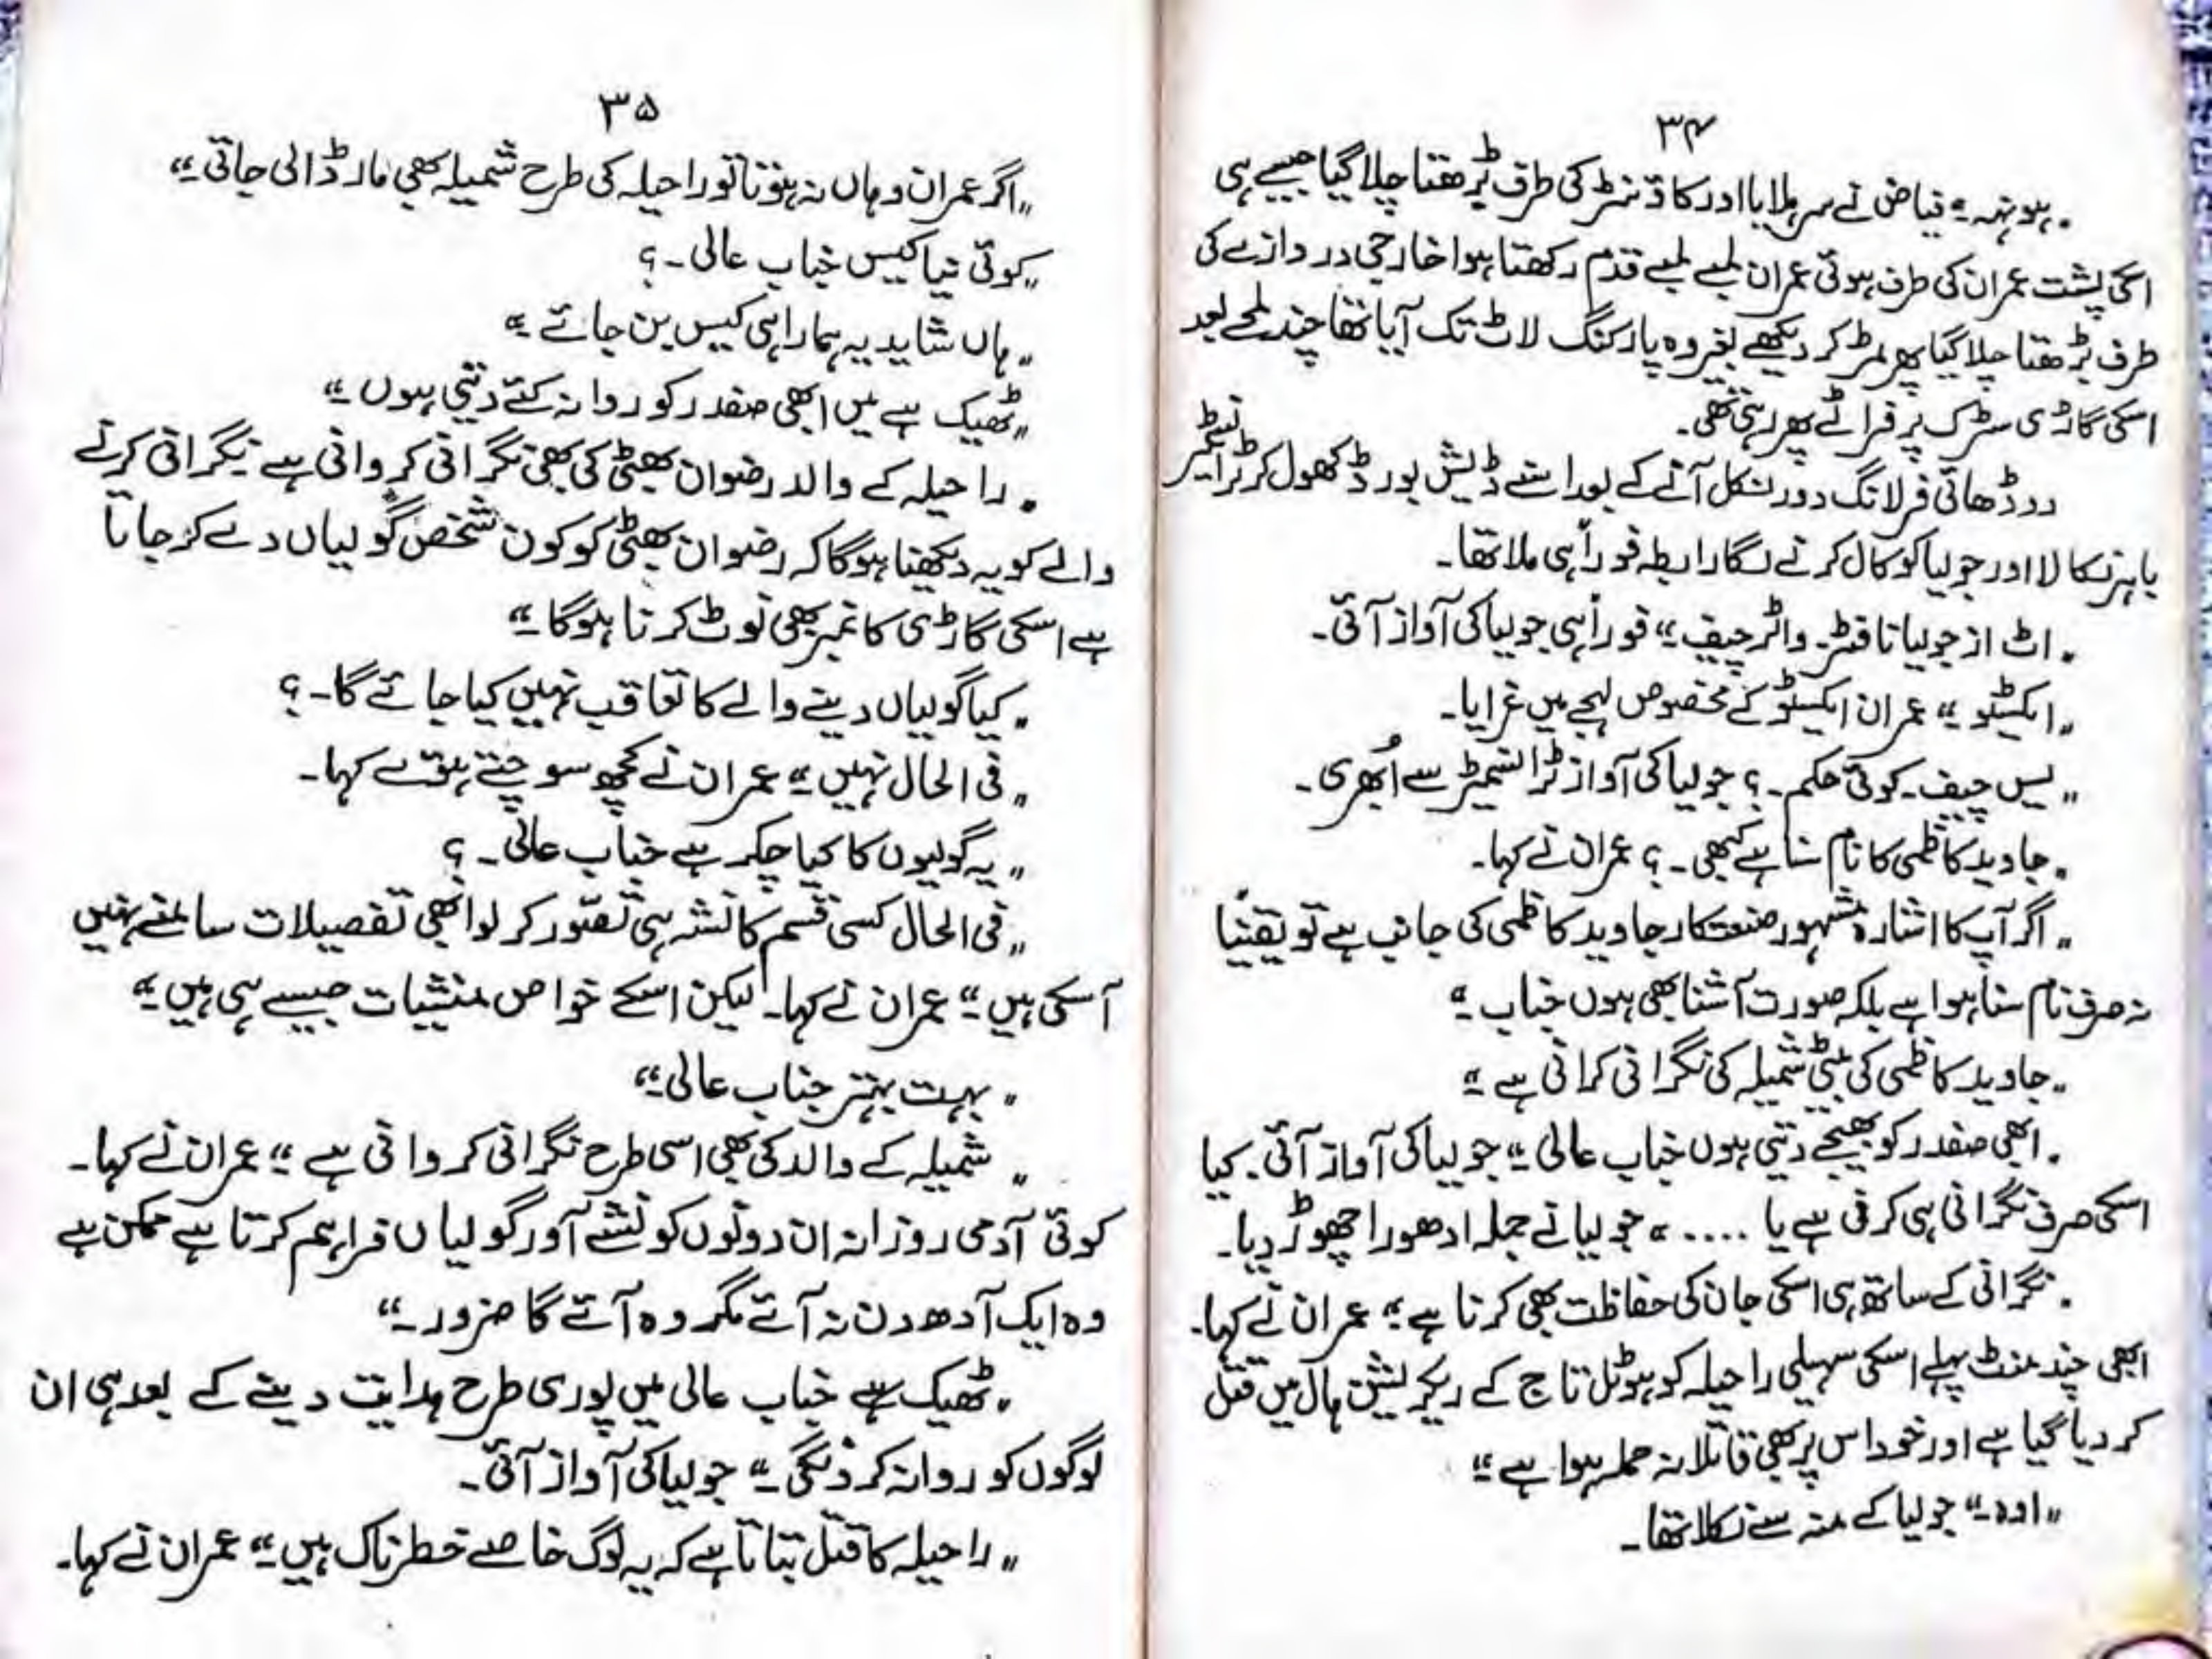 ۳۴
„ہونہہ۔“ فیاض نے سر ہلایا اور کاؤنٹر کی طرف بڑھتا چلا گیا جیسے ہی
اسکی پشت عمران کی طرف ہوئی عمران لمبے لمبے قدم رکھتا ہوا خارجی دروازے کی
طرف بڑھتا چلا گیا پھر مڑ کر دیکھے بغیر وہ پارکنگ لاٹ تک آیا تھا چند لمحے بعد
اسکی گاڑی سڑک پر فراٹے بھر رہی تھی۔
دو ڈھائی فرلانگ دور نکل آنے کے بعد اسنے ڈیش بورڈ کھول کر ٹرانسمیٹر
باہر نکالا اور جولیا کو کال کرنے لگا رابطہ فوراً ہی ملا تھا۔
„اٹ از جولیا نا فٹنر واٹر چیف۔“ فوراً ہی جولیا کی آواز آئی۔
„ایکسٹو۔“ عمران ایکسٹو کے مخصوص لہجے میں غرایا۔
„یس چیف۔ کوئی حکم۔؟ جولیا کی آواز ٹرانسمیٹر سے اُبھری۔
„جاوید کاظمی کا نام سنا ہے کبھی۔؟ عمران نے کہا۔
„اگر آپ کا اشارہ مشہور صنعتکار جاوید کاظمی کی جانب ہے تو یقیناً
نہ صرف نام سنا ہوا ہے بلکہ صورت آشنا بھی ہوں جناب۔“
„جاوید کاظمی کی بیٹی شمیلہ کی نگرانی کرانی ہے۔“
„ابھی صفدر کو بھیجے دیتی ہوں جناب عالی۔“ جولیا کی آواز آئی۔ کیا
اسکی صرف نگرانی ہی کرنی ہے یا ....“ جولیا نے جملہ ادھورا چھوڑ دیا۔
„نگرانی کے ساتھ ہی اسکی جان کی حفاظت بھی کرنا ہے۔“ عمران نے کہا۔
ابھی چند منٹ پہلے اسکی سہیلی راحیلہ کو ہوٹل تاج کے ریکریشن ہال میں قتل
کر دیا گیا ہے اور خود اس پر بھی قاتلانہ حملہ ہوا ہے۔“
„اوہ۔“ جولیا کے منہ سے نکلا تھا۔
۳۵
„اگر عمران وہاں نہ ہوتا تو راحیلہ کی طرح شمیلہ بھی مار ڈالی جاتی۔“
„کوئی نیا کیس جناب عالی۔؟
„ہاں شاید یہ ہمارا ہی کیس بن جائے۔“
„ٹھیک ہے میں ابھی صفدر کو روانہ کئے دیتی ہوں۔“
„راحیلہ کے والد رضوان بھٹی کی بھی نگرانی کروانی ہے نگرانی کرنے
والے کو یہ دیکھنا ہوگا کہ رضوان بھٹی کو کون شخص گولیاں دے کر جاتا
ہے اسکی گاڑی کا نمبر بھی نوٹ کرنا ہوگا۔“
„کیا گولیاں دینے والے کا تعاقب نہیں کیا جائے گا۔؟
„فی الحال نہیں۔“ عمران نے کچھ سوچتے ہوئے کہا۔
„یہ گولیوں کا کیا چکر ہے جناب عالی۔؟
„فی الحال کسی قسم کا نشہ ہی تصور کر لو ابھی تفصیلات سامنے نہیں
آ سکی ہیں۔“ عمران نے کہا۔ لیکن اسکے خواص منشیات جیسے ہی ہیں۔“
„بہت بہتر جناب عالی۔“
„شمیلہ کے والد کی بھی اسی طرح نگرانی کروانی ہے۔“ عمران نے کہا۔
کوئی آدمی روزانہ ان دونوں کو نشے آور گولیاں فراہم کرتا ہے ممکن ہے
وہ ایک آدھ دن نہ آئے مگر وہ آئے گا ضرور۔“
„ٹھیک ہے جناب عالی میں پوری طرح ہدایت دینے کے بعد ہی ان
لوگوں کو روانہ کر دنگی۔“ جولیا کی آواز آئی۔
„راحیلہ کا قتل بتاتا ہے کہ یہ لوگ خاصے خطرناک ہیں۔“ عمران نے کہا۔